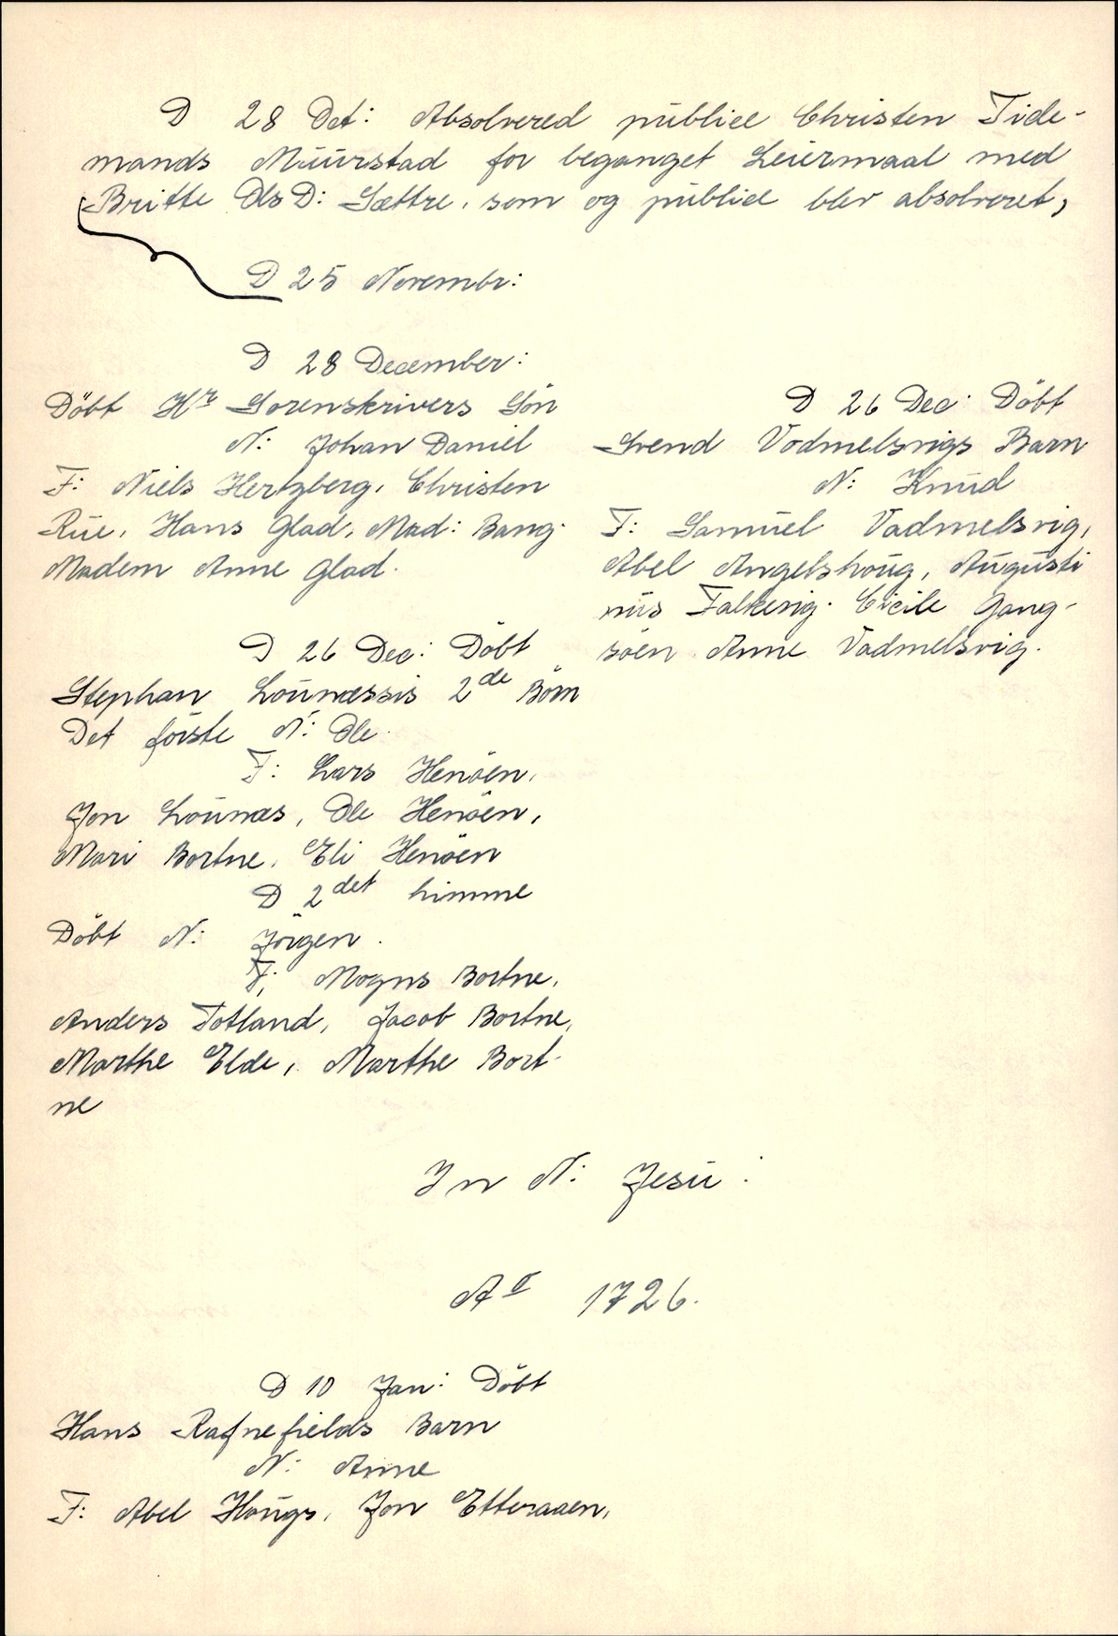 D 28 Oct: Absolvered publice Christen Tide-
mands Muurstad for beganget Leiermaal med
Britte Ols D: Sættre, som og publice blev absolveret,
D 25 Novembr:
D 28 December:
Döbt Hr Sorenskrivers Sön
N: Johan Daniel
F: Niels Hertzberg, Christen
Rüe, Hans Glad, Mad: Bang.
Madem Anne Glad.
D 26 Dec: Döbt
Stephan Loünæssis 2de Börn
Det förste N: Ole.
F: Lars Henöen,
Jon Loünæs, Ole Henöen,
Mari Bortne, Eli Henöen
D 2det himme
Döbt N: Jörgen.
F; Mogns Bortne,
Anders Totland, Jacob Bortne,
Marthe Elde, Marthe Bort-
ne
D 26 Dec. Döbt
Svend Vodmelsvigs Barn
N: Knud
F: Samuel Vadmelsvig,
Abel Angelshoug, Augusti
nus Falkevig. Cicile Gang-
söen Anne Vadmelsvig.
In N: Jesu:
Ao 1726.
D 10 Jan: Döbt
Hans Rafnefields Barn
N: Anne
F: Abel Hougs, Jon Etteraaen,